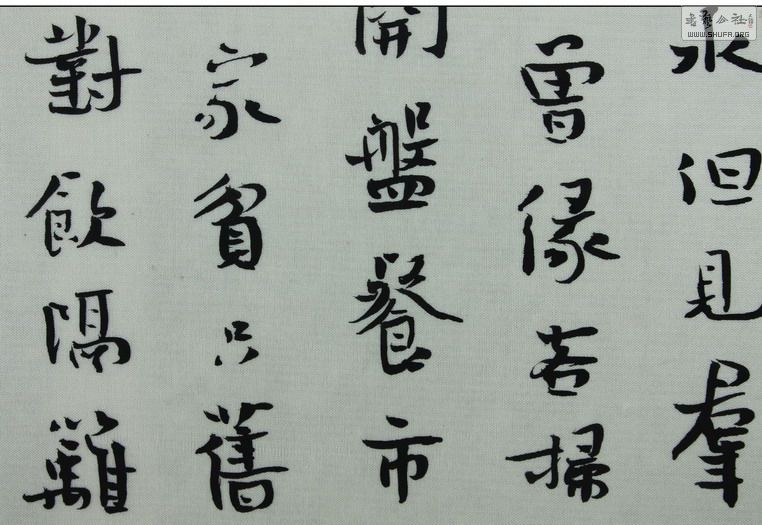 水但見羣
曾緣客掃
開盤餐市
家貧只舊
對飲隔籬
書藝公社
WWW.SHUFA.ORG